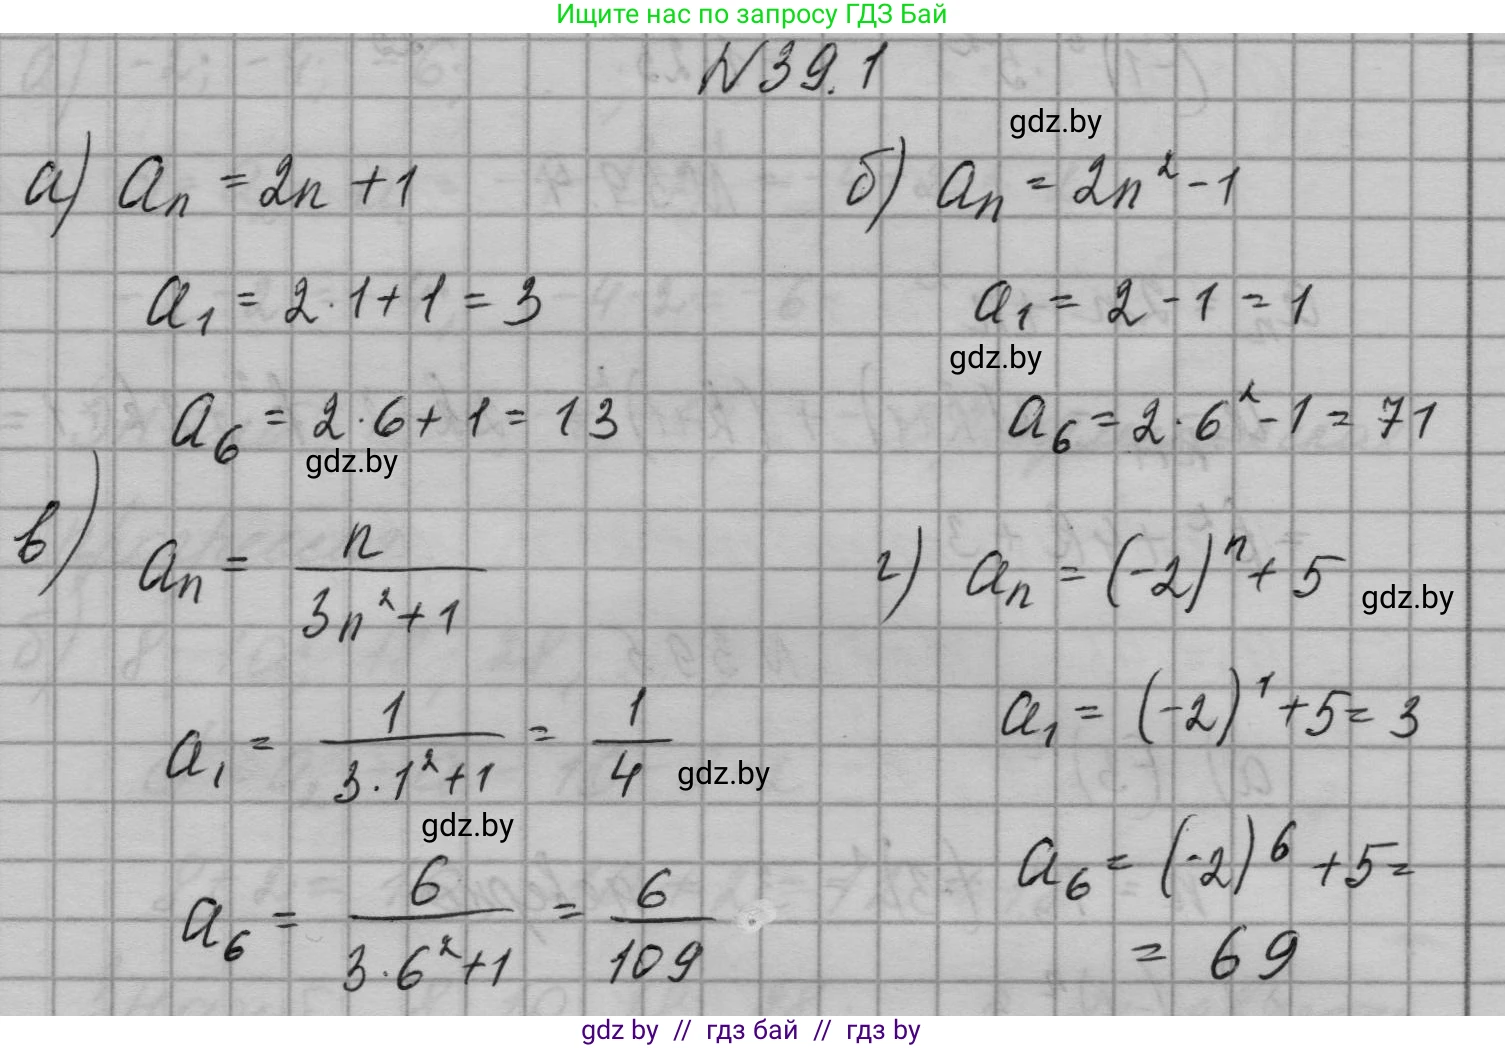 Ищите нас по запросу ГДЗ Бай
N39.1
gdz.by
а) aₙ = 2n + 1
a₁ = 2 · 1 + 1 = 3
a₆ = 2 · 6 + 1 = 13
gdz.by
б) aₙ = 2n² - 1
a₁ = 2 - 1 = 1
gdz.by
a₆ = 2 · 6² - 1 = 71
в) aₙ = n / (3n² + 1)
a₁ = 1 / (3 · 1² + 1) = 1 / 4
gdz.by
gdz.by
a₆ = 6 / (3 · 6² + 1) = 6 / 109
г) aₙ = (-2)ⁿ + 5
gdz.by
a₁ = (-2)¹ + 5 = 3
a₆ = (-2)⁶ + 5 =
= 69
gdz by // гдз бай // гдз by